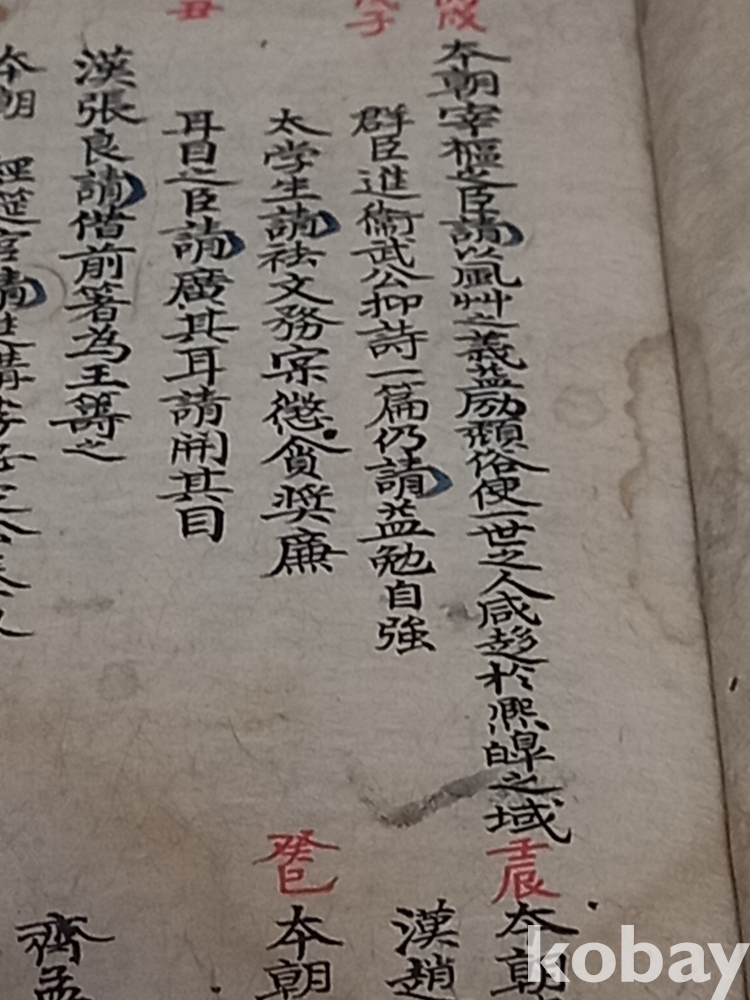 戌
本朝宰樞之臣請以風艸之義益励頹俗使一世之人咸趍於熈皡之域
壬辰
本朝
漢趙
子
群臣進衞武公抑詩一篇仍請益勉自強
太学生請祛文務宲懲貪奬廉
癸巳
本朝
丑
耳目之臣請廣其耳請開其目
漢張良請借前箸為王籌之
齊孟
本朝 經筵官請進講
kobay